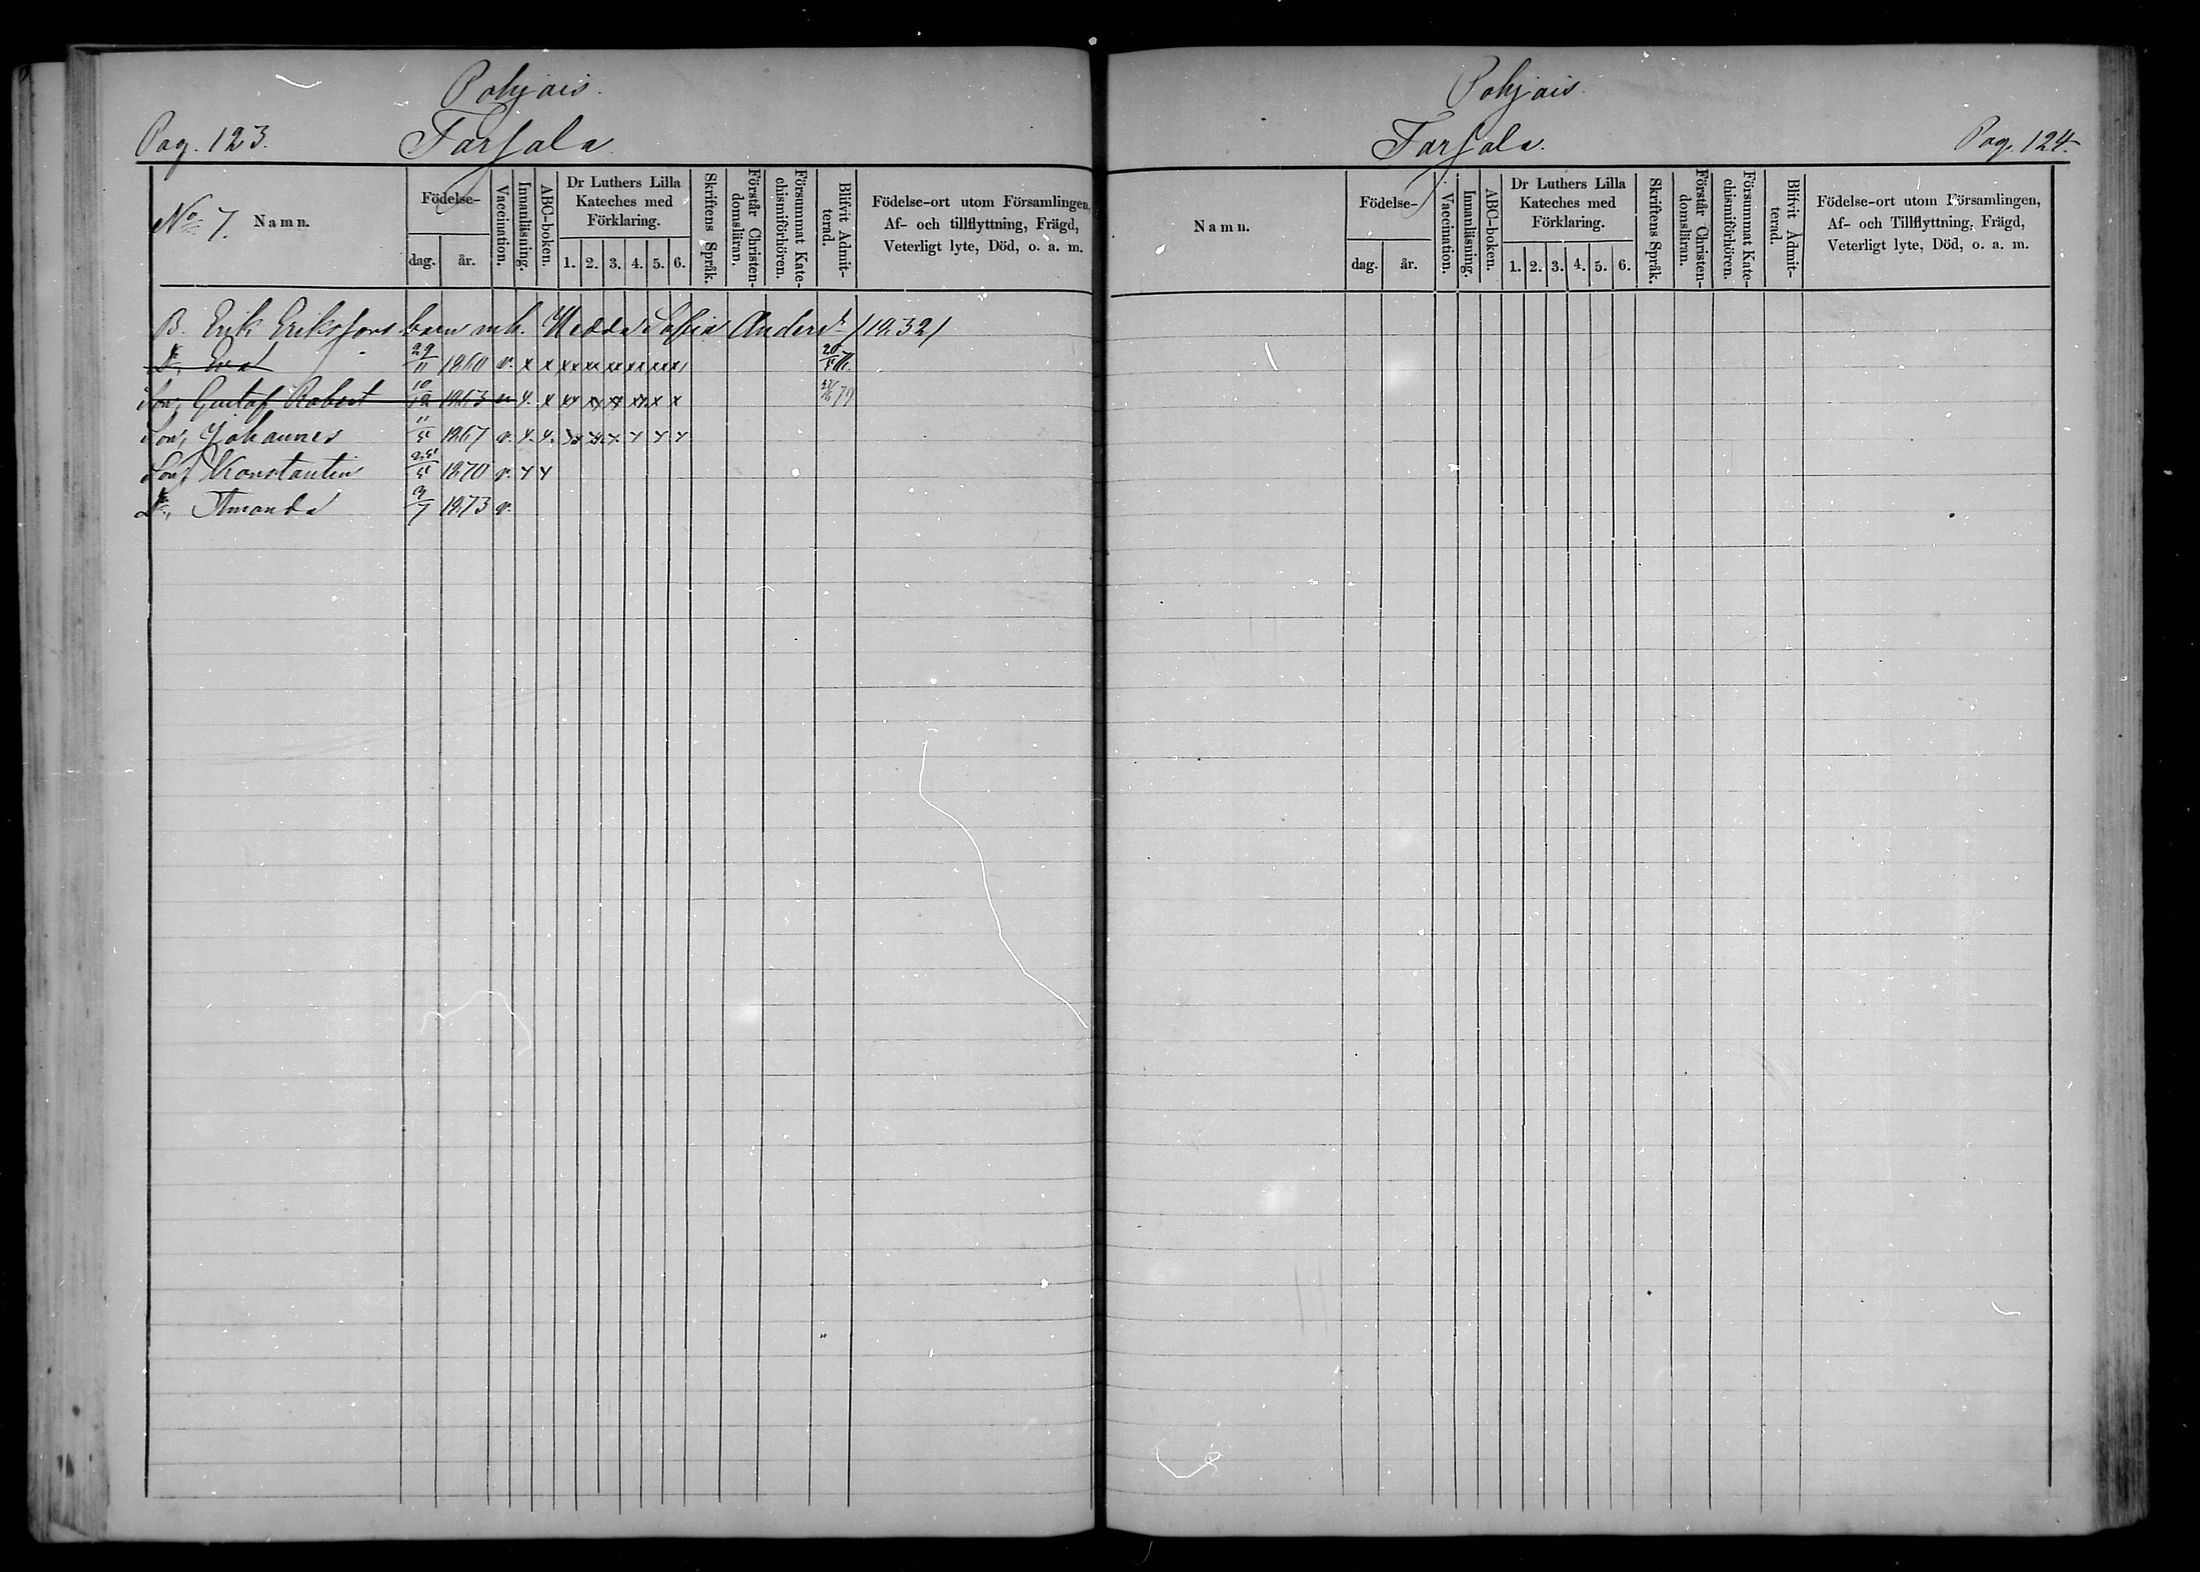 Pohjais.
Pag. 123. Farsala
No 7. Namn. Födelse- dag. år. Vaccination. Innanläsning. ABC-boken. Dr Luthers Lilla Kateches med Förklaring. 1. 2. 3. 4. 5. 6. Skriftens Språk. Förstår Christen-domsläran. Försummat Kate-chismiförhören. Blifvit Admit-terad. Födelse-ort utom Församlingen, Af- och tillflyttning, Frägd, Veterligt lyte, Död, o. a. m.
B. Erik Erikssons barn m h. Hedda Sofia Andersdr /1832/
Dr, Eva 29/11 1860 v. x x xx xx xx xx xx x
Son, Gustaf Robert 10/12 1863 v x x xx xx xx xx x x 79
Son, Johannes 11/5 1867 v. x. x.
Son, Konstantin 25/5 1870 v. x x
Dr, Amanda 3/7 1873 v.
Pohjais.
Farsala. Pag. 124.
Namn. Födelse- dag. år. Vaccination. Innanläsning. ABC-boken. Dr Luthers Lilla Kateches med Förklaring. 1. 2. 3. 4. 5. 6. Skriftens Språk. Förstår Christen-domsläran. Försummat Kate-chismiförhören. Blifvit Admit-terad. Födelse-ort utom Församlingen, Af- och Tillflyttning, Frägd, Veterligt lyte, Död, o. a. m.